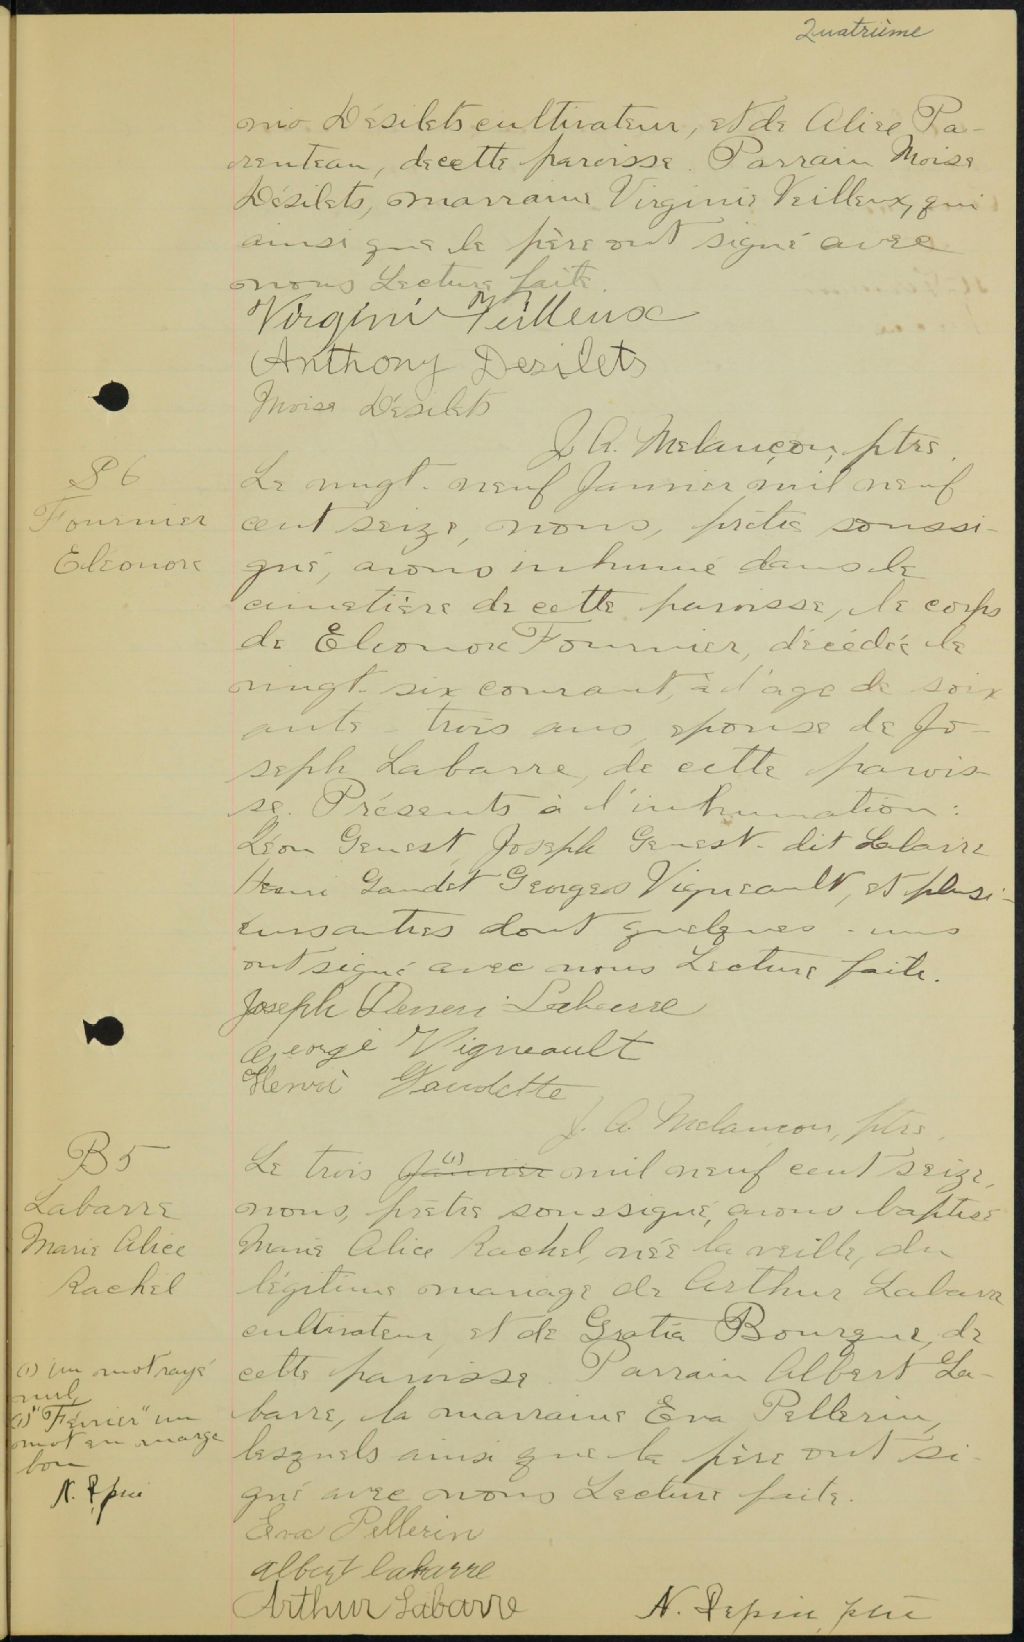 Quatrième
mo Désilets cultivateur, et de Alice Pa-
renteau, de cette paroisse. Parrain Moise
Désilets, marraine Virginie Veilleux, qui
ainsi que le père ont signé avec
nous Lecture faite.
Virginie Veilleux
Anthony Desilets
Moise Désilets
J. A. Melançon, ptre.
S 6
Fournier
Eléonore
Le vingt-neuf Janvier mil neuf
cent seize, nous, prêtre soussi-
gné, avons inhumé dans le
cimetière de cette paroisse, le corps
de Eleonore Fournier, décédée le
vingt-six courant, à l'age de soix
ante-trois ans, epouse de Jo-
seph Labarre, de cette parois-
se. Présents à l'inhumation:
Léon Genest, Joseph Genest-dit Labarre
Henri Gaudet Georges Vigneault, et plusi-
eurs autres dont quelques-uns
ont signé avec nous Lecture faite.
Joseph Labarre
George Vigneault
Henri Gaudette
J. A. Melançon, ptre.
B 5
Labarre
Marie Alice
Rachel
Le trois Janvier (1) mil neuf cent seize,
nous, prêtre soussigné, avons baptisé
Marie Alice Rachel, née la veille, du
légitime mariage de Arthur Labarre
cultivateur, et de Gratia Bourque, de
cette paroisse. Parrain Albert La-
barre, la marraine Eva Pellerin,
lesquels ainsi que le père ont si-
gné avec nous Lecture faite.
(1) Un mot rayé
nul
(1) "Février" un
mot en marge
bon
N. Pépin
Eva Pellerin
albert labarre
Arthur Labarre
N. Pepin, ptre